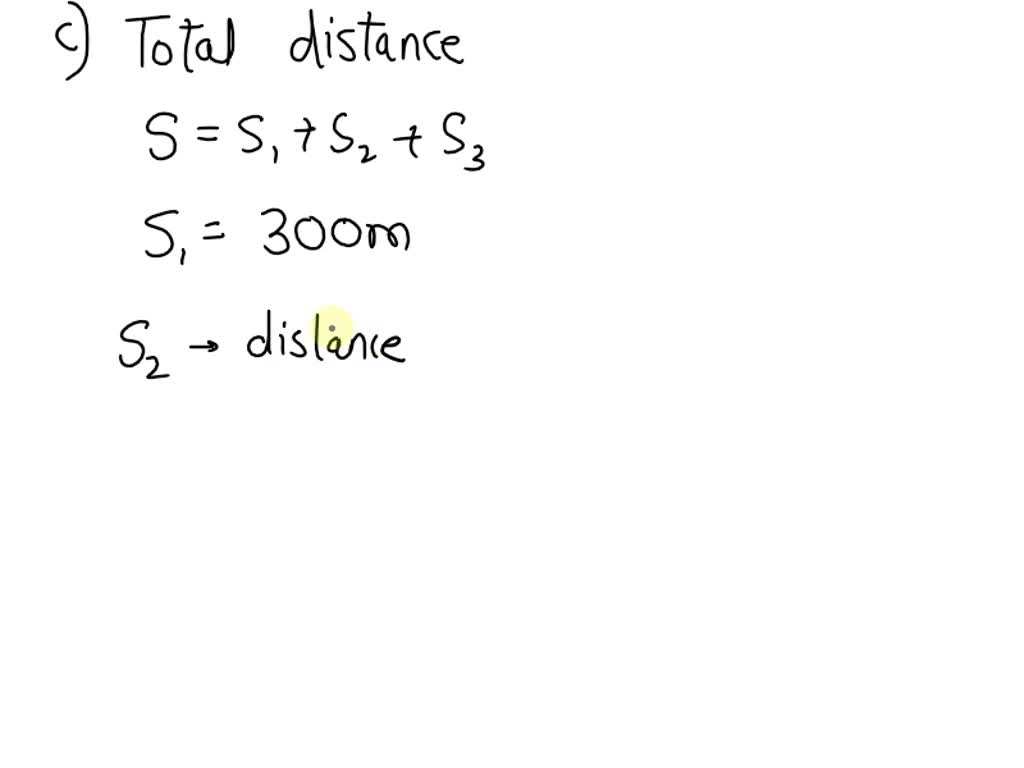 c) Total distance
S = S₁ + S₂ + S₃
S₁ = 300m
S₂ → distance